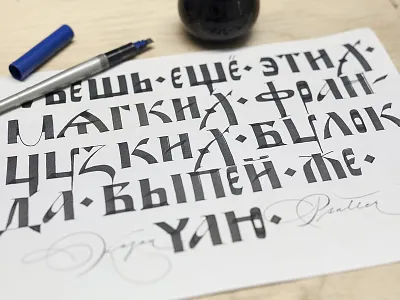 ЪЕШЬ·ЕЩЁ·ЭТИХ·
МѦГКИХ·ФРАН-
ЦУZКИХ·БУЛОК
ДА·ВЫПЕЙ·ЖЕ·
ЧАЮ·